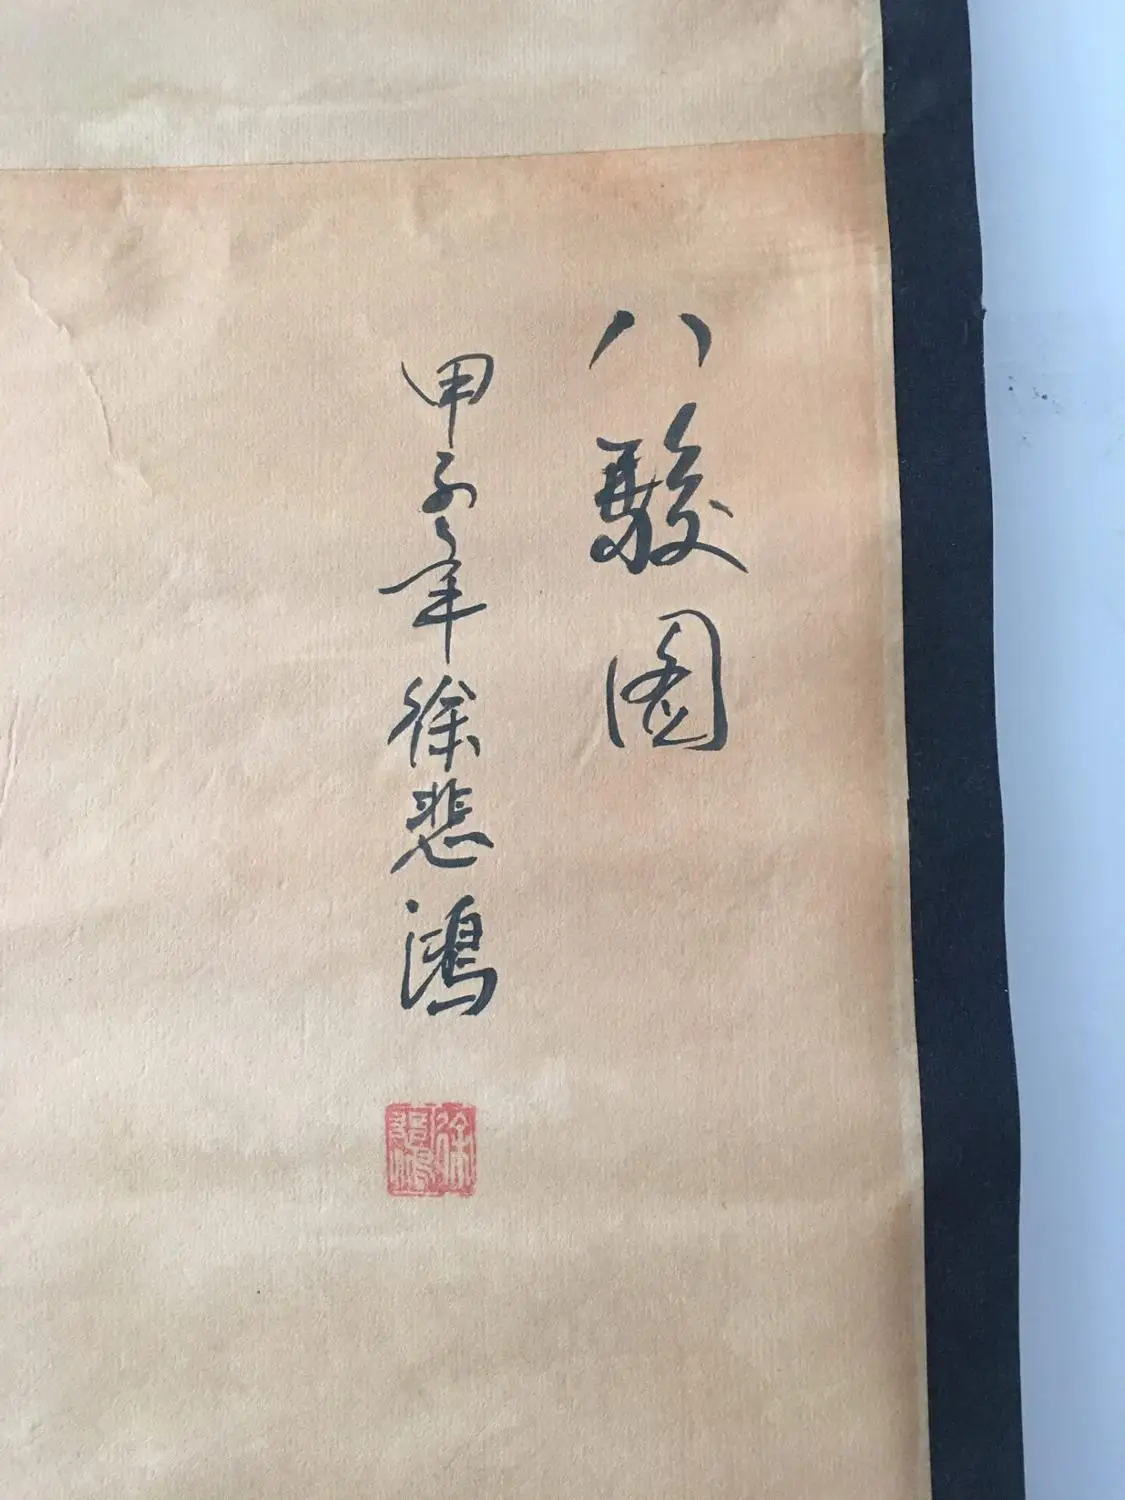 八駿圖
甲子年徐悲鴻
徐悲鴻